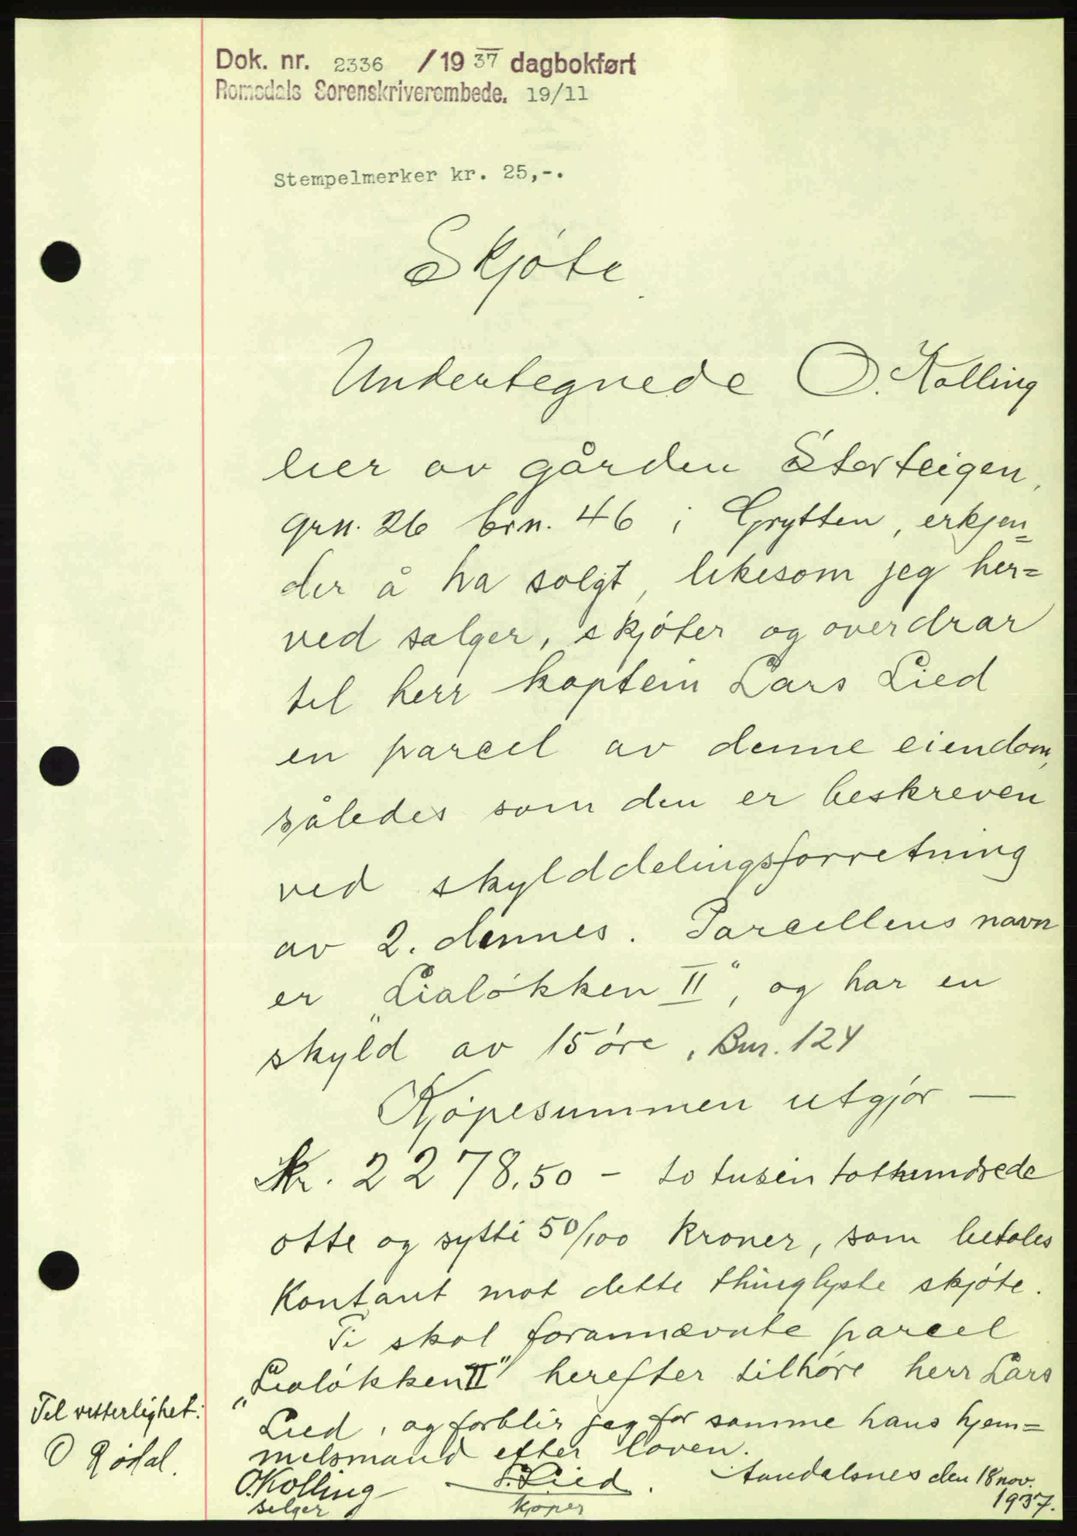 Dok. nr. 2336 /1937 dagbokført
Romsdals Sorenskriverembede. 19/11
Stempelmerker kr. 25,-.
Skjøte.
Undertegnede O. Kolling
eier av gården Storteigen,
grn. 26 brn. 46 i Grytten, erkjen=
der å ha solgt, likesom jeg her=
ved sælger, skjøter og overdrar
til herr kaptein Lars Lied
en parcel av denne eiendom,
således som den er beskreven
ved skylddelingsforretning
av 2. dennes. Parcellens navn
er "Lialøkken II", og har en
skyld av 15 øre, Bnr. 124
Kjøpesummen utgjør —
Kr. 2278.50 - to tusen tohundrede
otte og sytti 50/100 kroner, som betales
Kontant mot dette thinglyste skjøte.
Ti skal forannævnte parcel
"Lialøkken II" herefter tilhøre herr Lars
Lied, og forblir jeg for samme hans hjem=
melsmand efter loven.
Åndalsnes den 18 nov.
1937.
O. Kolling
selger
L. Lied.
kjøper
Til vitterlighet:
O Rødal.